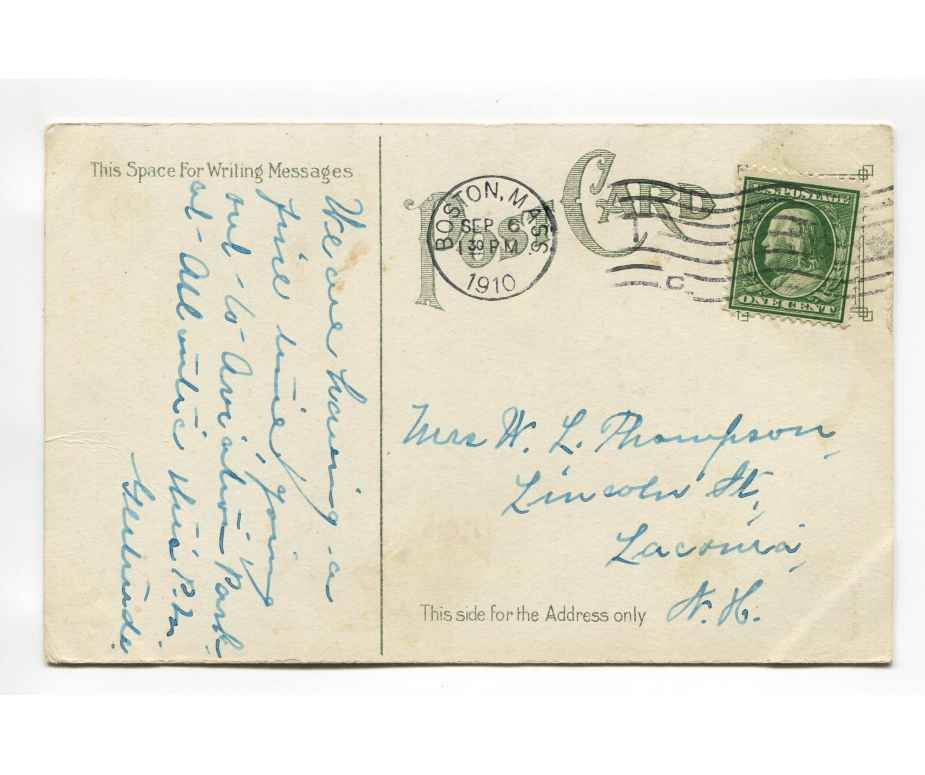 This Space For Writing Messages
We are having a
fine time, going
out to Aviation Park
at Atlantic this P.M.
Gertrude.
POST CARD
BOSTON, MASS.
SEP 6
1 30 P.M.
1910
C
U.S. POSTAGE
ONE CENT
Mrs W. L. Thompson,
Lincoln St,
Laconia,
N. H.
This side for the Address only